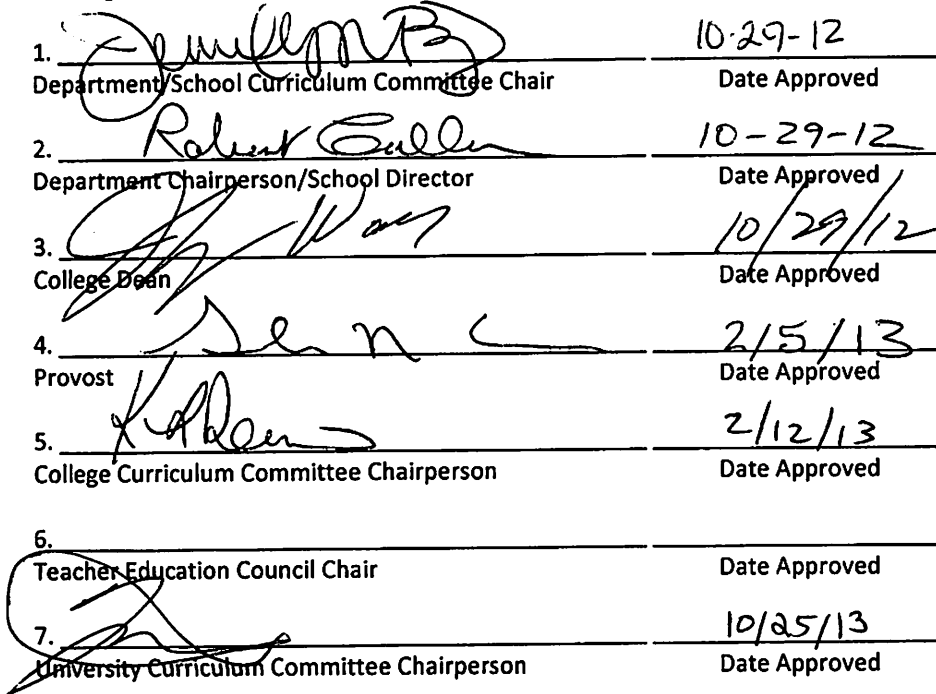 1. 10-29-12
Department/School Curriculum Committee Chair Date Approved
2. Robert 10-29-12
Department Chairperson/School Director Date Approved
3. 10/29/12
College Dean Date Approved
4. 2/5/13
Provost Date Approved
5. 2/12/13
College Curriculum Committee Chairperson Date Approved
6.
Teacher Education Council Chair Date Approved
7. 10/25/13
University Curriculum Committee Chairperson Date Approved